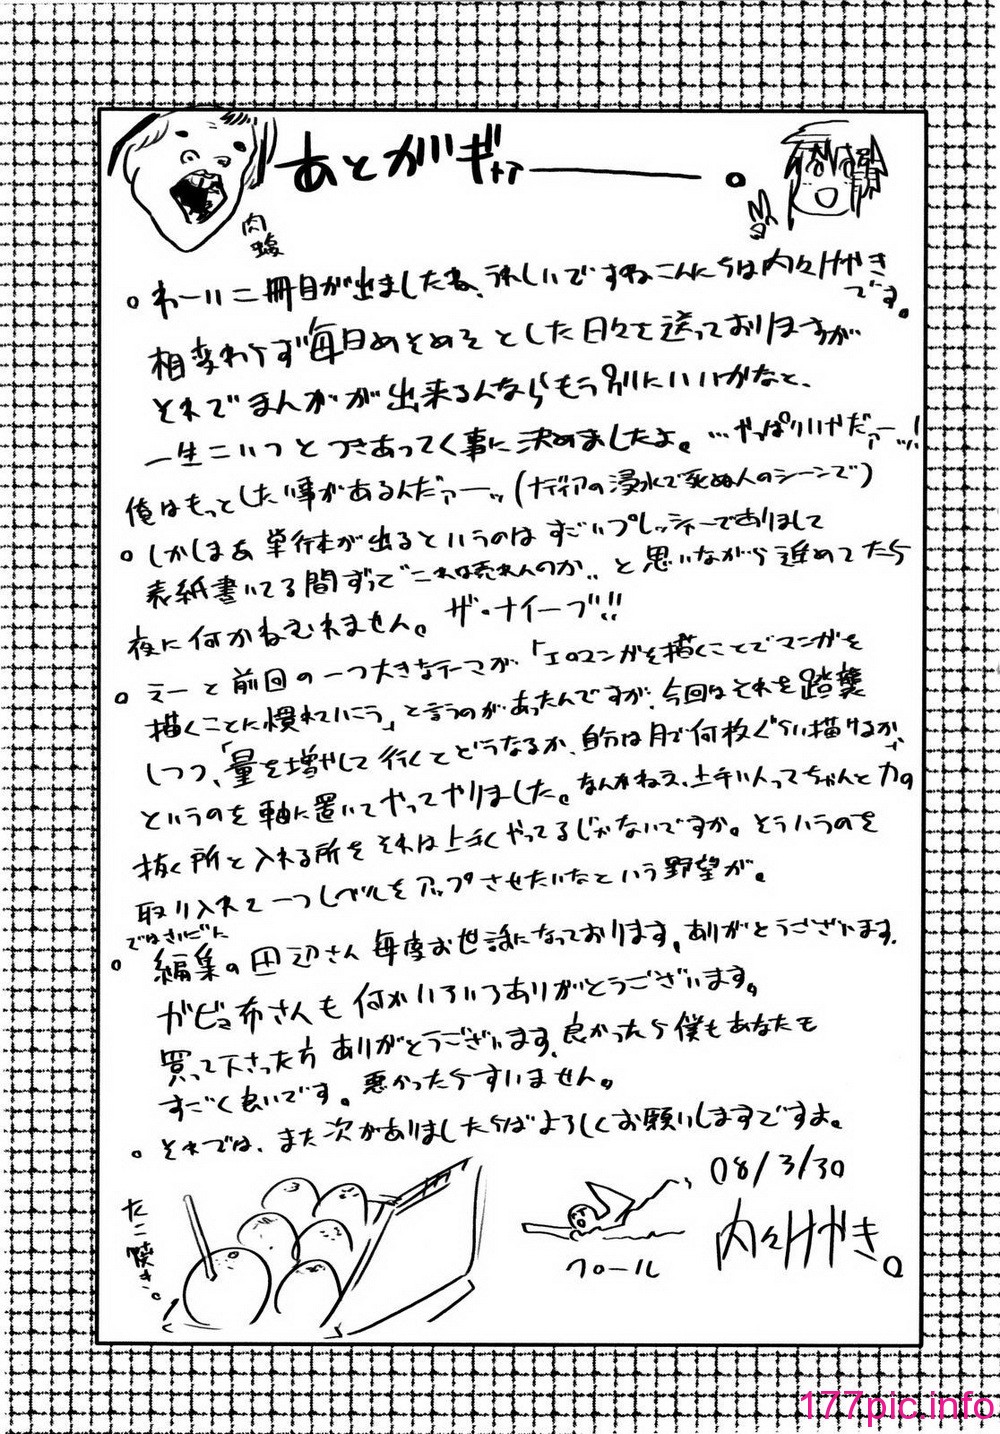 あとがギャァ――――。
肉
。わーい二冊目が出ましたね、うれしいですねこんにちは内々けやき
です。
相変わらず毎日めそめそとした日々を送っておりますが
それでまんがが出来るんならもう別にいいかなと、
一生こいつとつきあってく事に決めましたよ。…やっぱりいやだァーッ!!
俺はもっとしたい事があるんだァーッ(ナディアの浸水で死ぬ人のシーンで)
。しかしまあ単行本が出るというのはすごいプレッシャーでありまして
表紙書いてる間ずっと“これは売れんのか..と思いながら進めてたら
夜に何かねむれません。 ザ・ナイーブ!!
。えーと前回の一つ大きなテーマが、「エロマンガを描くことでマンガを
描くことに慣れていこう」と言うのがあったんですが、今回はそれを踏襲
しつつ、「量を増やして行くとどうなるか、自分は月で何枚ぐらい描けるか」
というのを軸に置いてやってやりました。なんかねえ、上手い人ってちゃんと力の
抜く所と入れる所をそれは上手くやってるじゃないですか。そういうのを
取り入れて一つレベルをアップさせたいなという野望が。
ではさいごに
。編集の田辺さん毎度お世話になっております。ありがとうございます。
ガビョ布さんも何かいろいろありがとうございます。
買って下さった方ありがとうございます、良かったら僕もあなたも
すごく良いです。悪かったらすいません。
。それでは、また次がありましたらばよろしくお願いしますですよ。
たこ焼き。
プール
08/3/30
内々けやき。
177pic.info